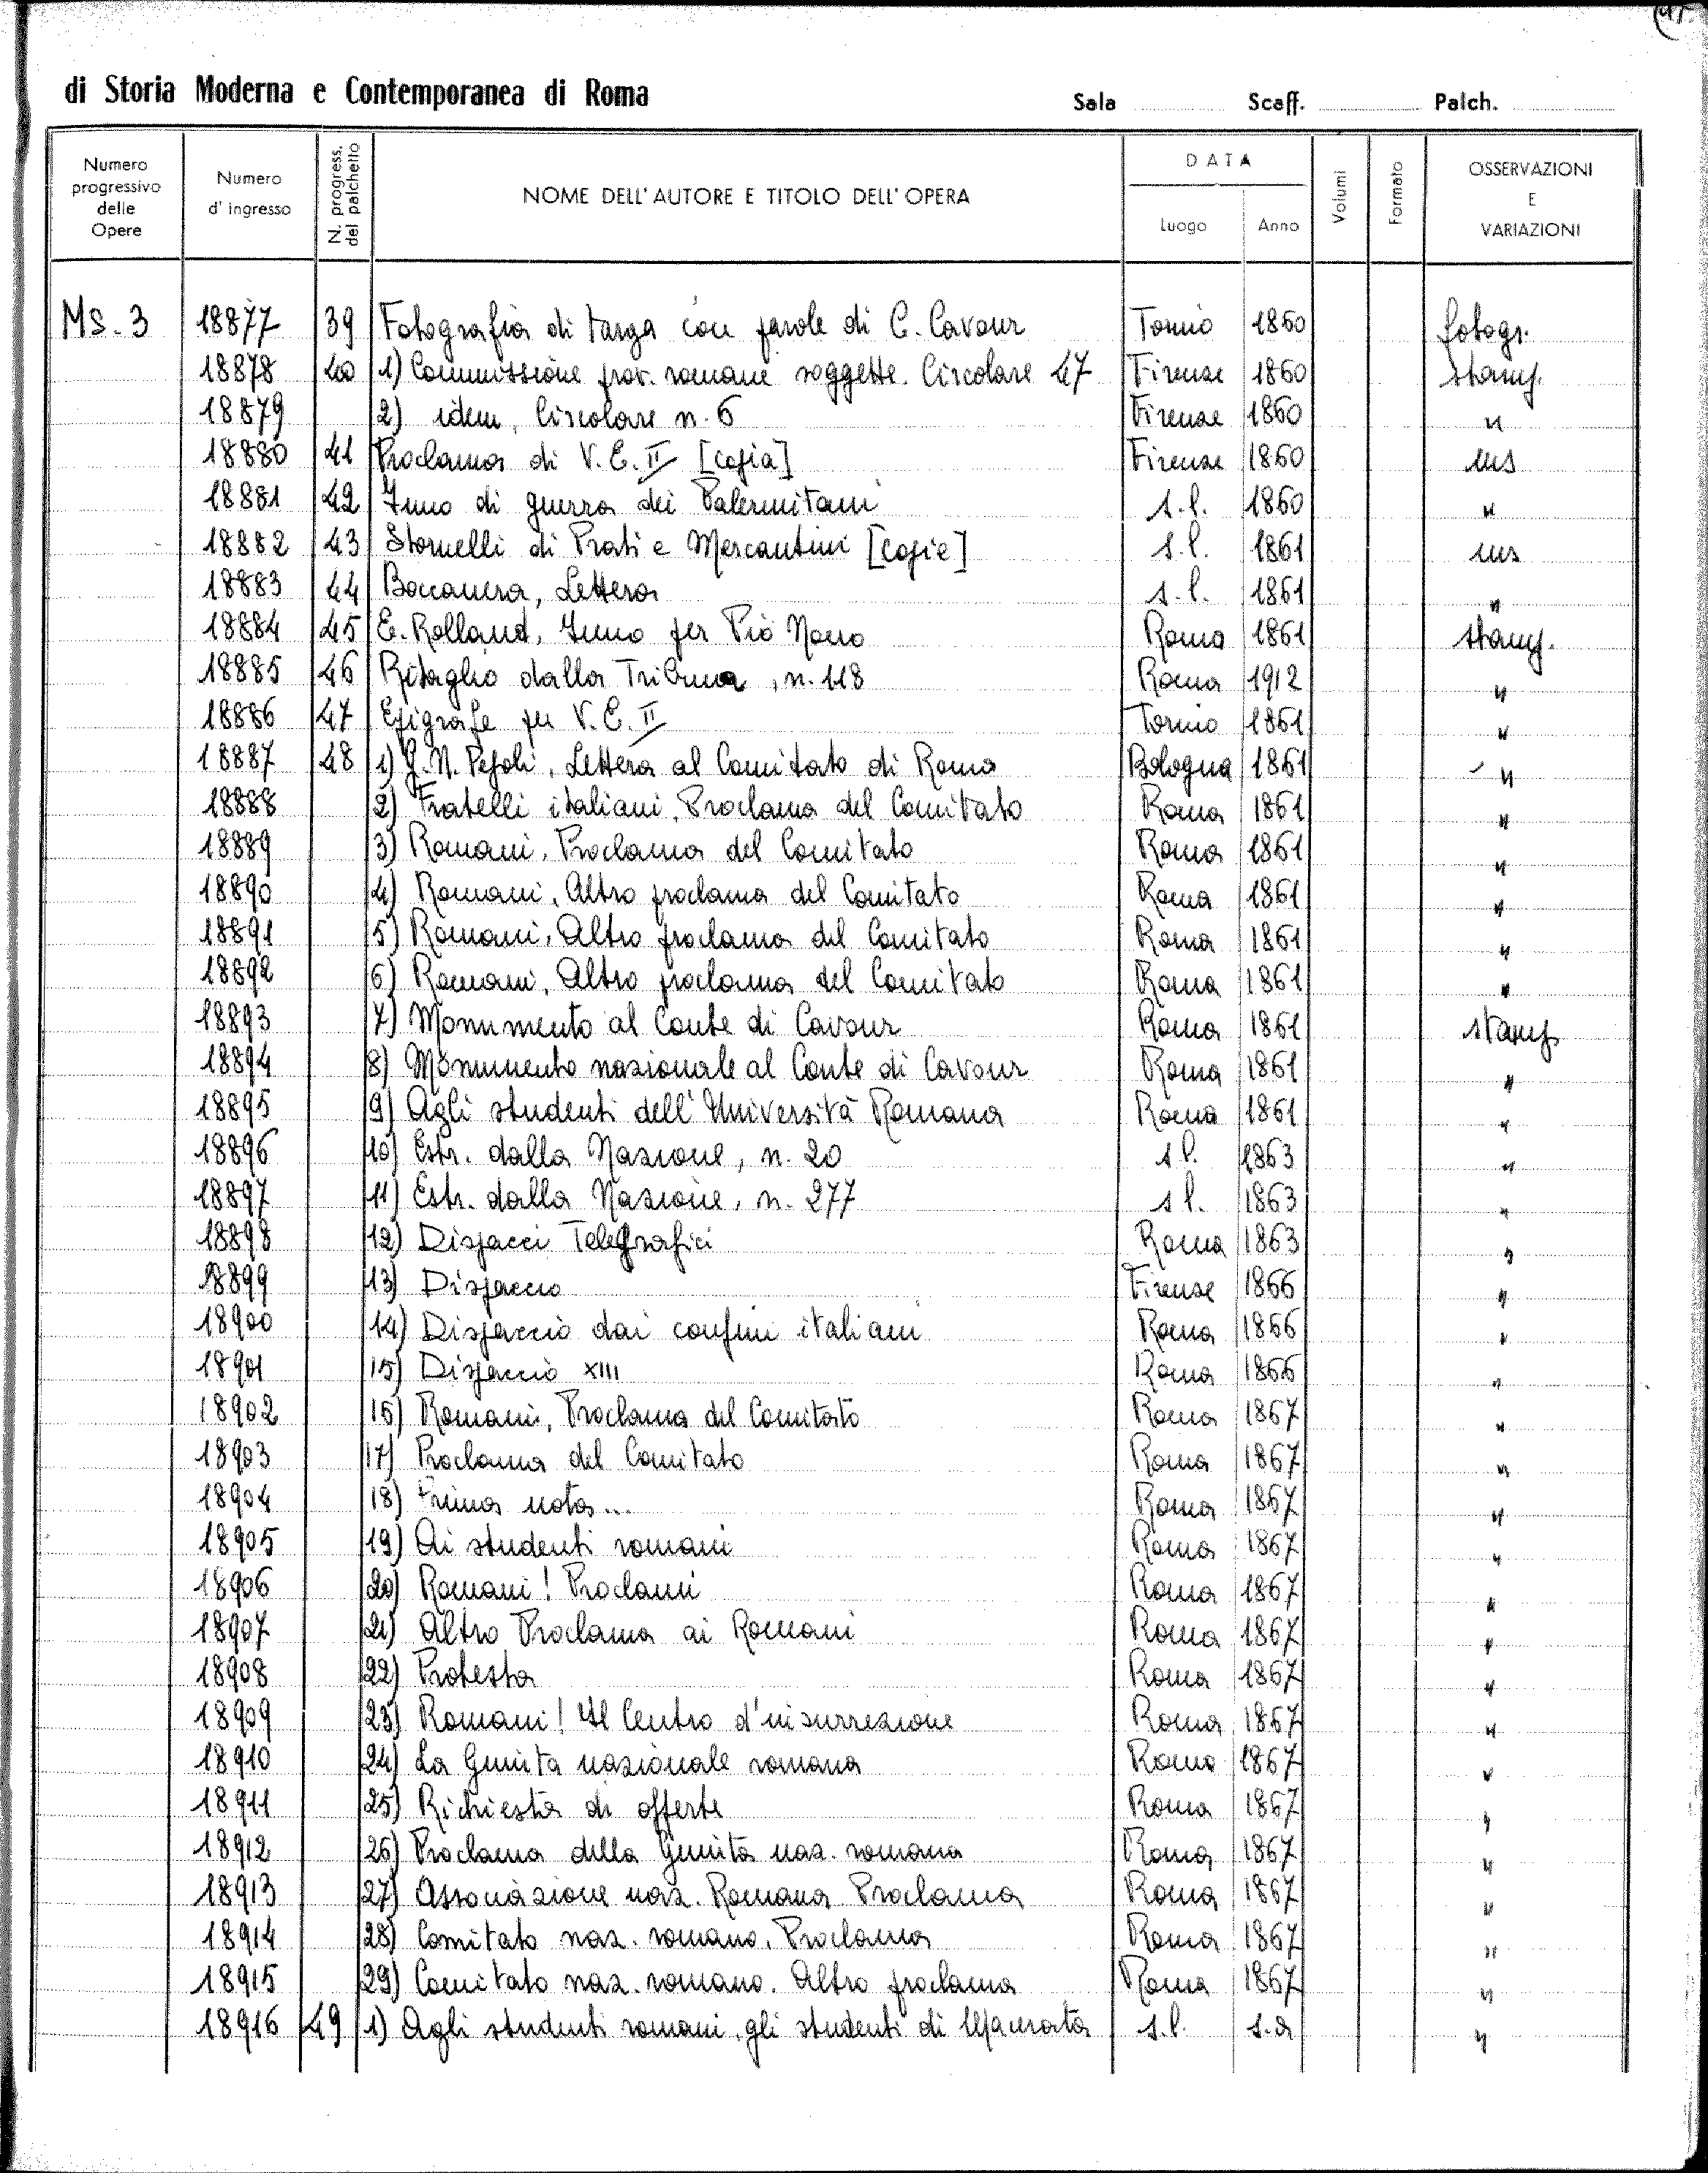 di Storia Moderna e Contemporanea di Roma Sala Scaff. Palch.
Numero progressivo delle Opere | Numero d'ingresso | N. progress. del palchetto | NOME DELL'AUTORE E TITOLO DELL'OPERA | DATA Luogo Anno | Volumi | Formato | OSSERVAZIONI E VARIAZIONI
Ms. 3 18877 39 Fotografia di targa con parole di C. Cavour Torino 1860 fotogr.
18878 40 1) Commissione prov. romane soggette. Circolare 47 Firenze 1860 stamp.
18879 2) idem, Circolare n. 6 Firenze 1860 "
18880 41 Proclama di V. E. II [copia] Firenze 1860 ms
18881 42 Inno di guerra dei Palermitani s.l. 1860 "
18882 43 Stornelli di Prati e Mercantini [copie] s.l. 1861 ms
18883 44 Boccanera, Lettera s.l. 1861 "
18884 45 E. Rolland, Inno per Pio Nono Roma 1861 stamp.
18885 46 Ritaglio dalla Tribuna, n. 118 Roma 1912 "
18886 47 Epigrafe per V. E. II Torino 1861 "
18887 48 1) G. N. Pepoli, Lettera al Comitato di Roma Bologna 1861 "
18888 2) Fratelli italiani. Proclama del Comitato Roma 1861 "
18889 3) Romani, Proclama del Comitato Roma 1861 "
18890 4) Romani, Altro proclama del Comitato Roma 1861 "
18891 5) Romani, Altro proclama del Comitato Roma 1861 "
18892 6) Romani, Altro proclama del Comitato Roma 1861 "
18893 7) Monumento al Conte di Cavour Roma 1861 stamp
18894 8) Monumento nazionale al Conte di Cavour Roma 1861 "
18895 9) Agli studenti dell'Università Romana Roma 1861 "
18896 10) Estr. dalla Nazione, n. 20 s.l. 1863 "
18897 11) Estr. dalla Nazione, n. 277 s.l. 1863 "
18898 12) Dispacci Telegrafici Roma 1863 "
18899 13) Dispaccio Firenze 1866 "
18900 14) Dispaccio dai confini italiani Roma 1866 "
18901 15) Dispaccio XIII Roma 1866 "
18902 16) Romani, Proclama del Comitato Roma 1867 "
18903 17) Proclama del Comitato Roma 1867 "
18904 18) Prima nota... Roma 1867 "
18905 19) Ai studenti romani Roma 1867 "
18906 20) Romani! Proclami Roma 1867 "
18907 21) Altro Proclama ai Romani Roma 1867 "
18908 22) Protesta Roma 1867 "
18909 23) Romani! Il Centro d'insurrezione Roma 1867 "
18910 24) La Giunta nazionale romana Roma 1867 "
18911 25) Richiesta di offerte Roma 1867 "
18912 26) Proclama della Giunta naz. romana Roma 1867 "
18913 27) Associazione naz. Romana Proclama Roma 1867 "
18914 28) Comitato naz. romano. Proclama Roma 1867 "
18915 29) Comitato naz. romano. Altro proclama Roma 1867 "
18916 49 1) Agli studenti romani, gli studenti di s.l. s.d. "